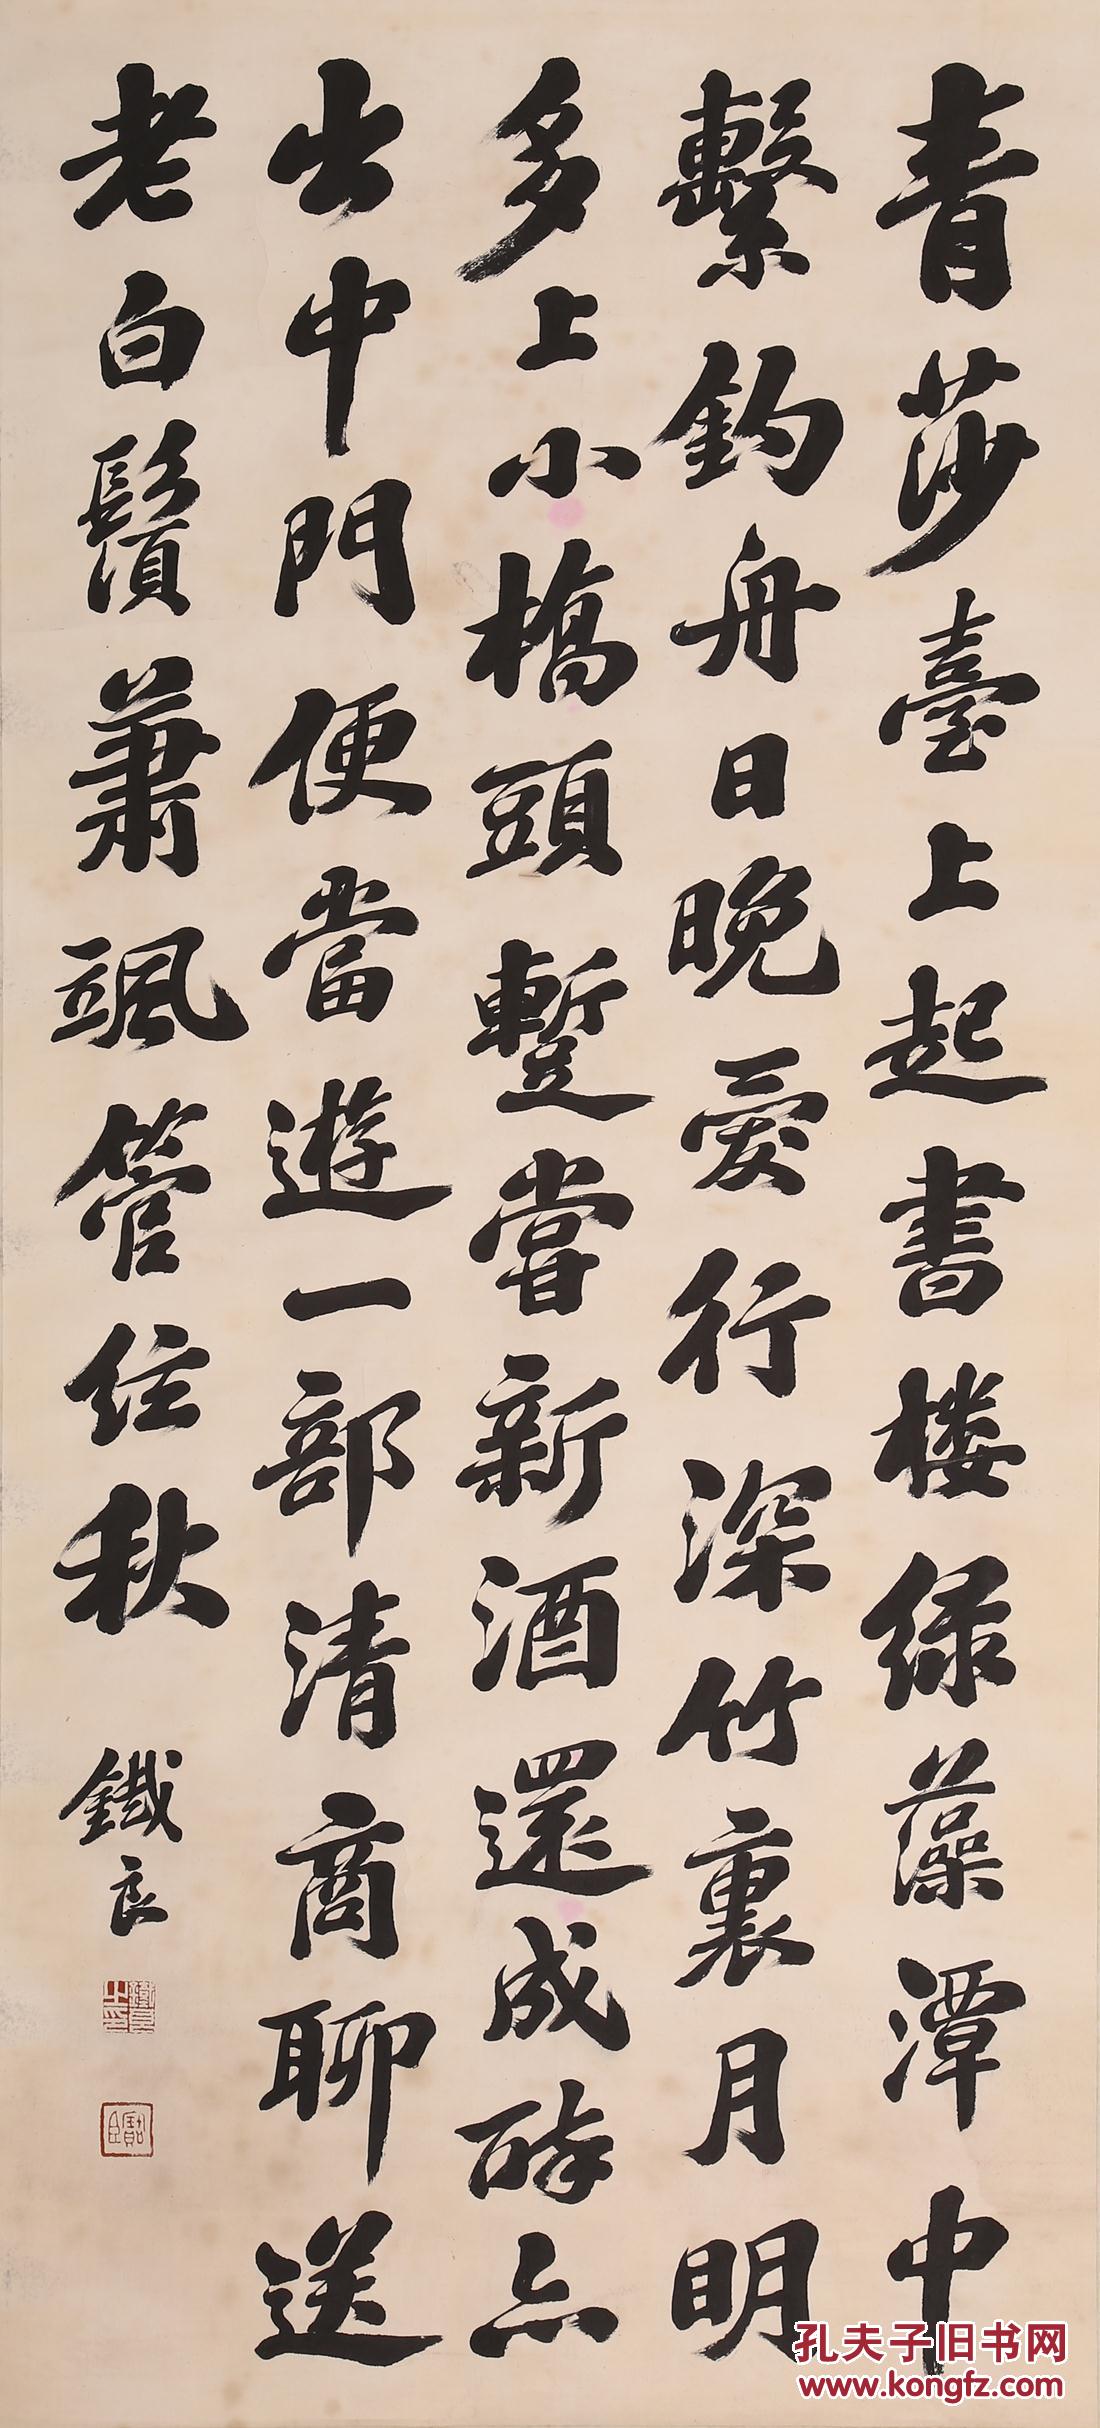 青莎臺上起書楼緑藻潭中
繫釣舟日晚愛行深竹裏月明
多上小橋頭蹔嘗新酒還成酔亦
出中門便當遊一部清商聊送
老白鬚蕭颯管絃秋
鐵良
鐵良之印
寶臣
孔夫子旧书网
www.kongfz.com